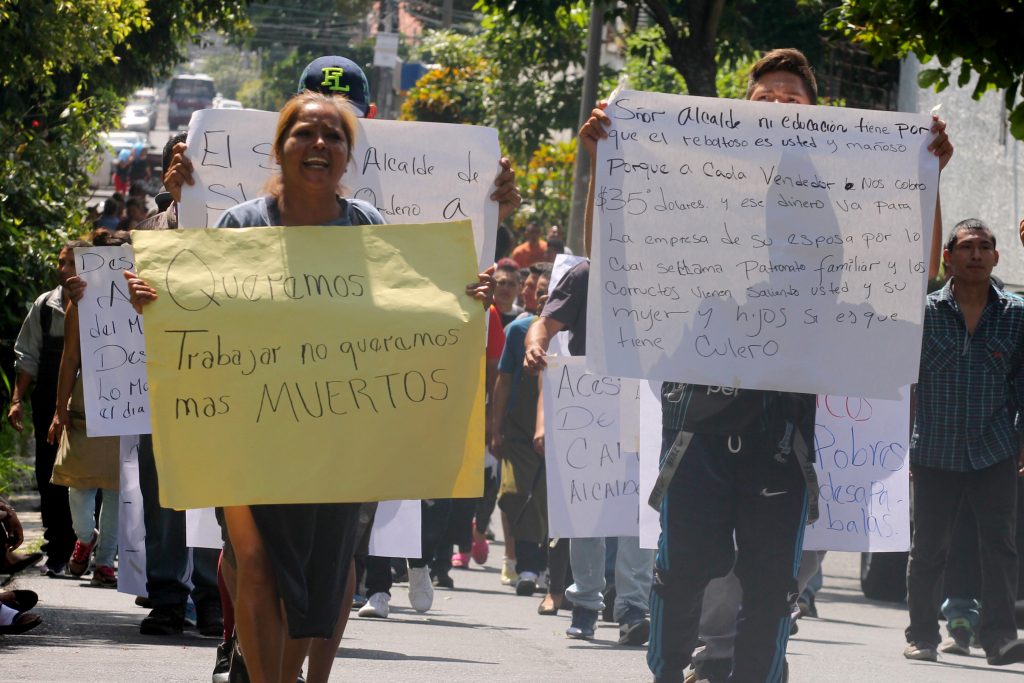 El S Alcalde de
ordeno a
Des
del M
Des
Lo M
el dia
Queramos
Trabajar no queramos
mas MUERTOS
Sñor Alcalde ni educación tiene por
que el rebatoso es usted y mañoso
Porque a Cada Vendedor Nos cobro
$35 dolares. y ese dinero va para
La empresa de su esposa por lo
cual se llama Patronato familiar y los
corructos vienen saliendo usted y su
mujer y hijos si es que
tiene Culero
De
CA
ALCALDE
COS
Pobres
desapa-
balas.